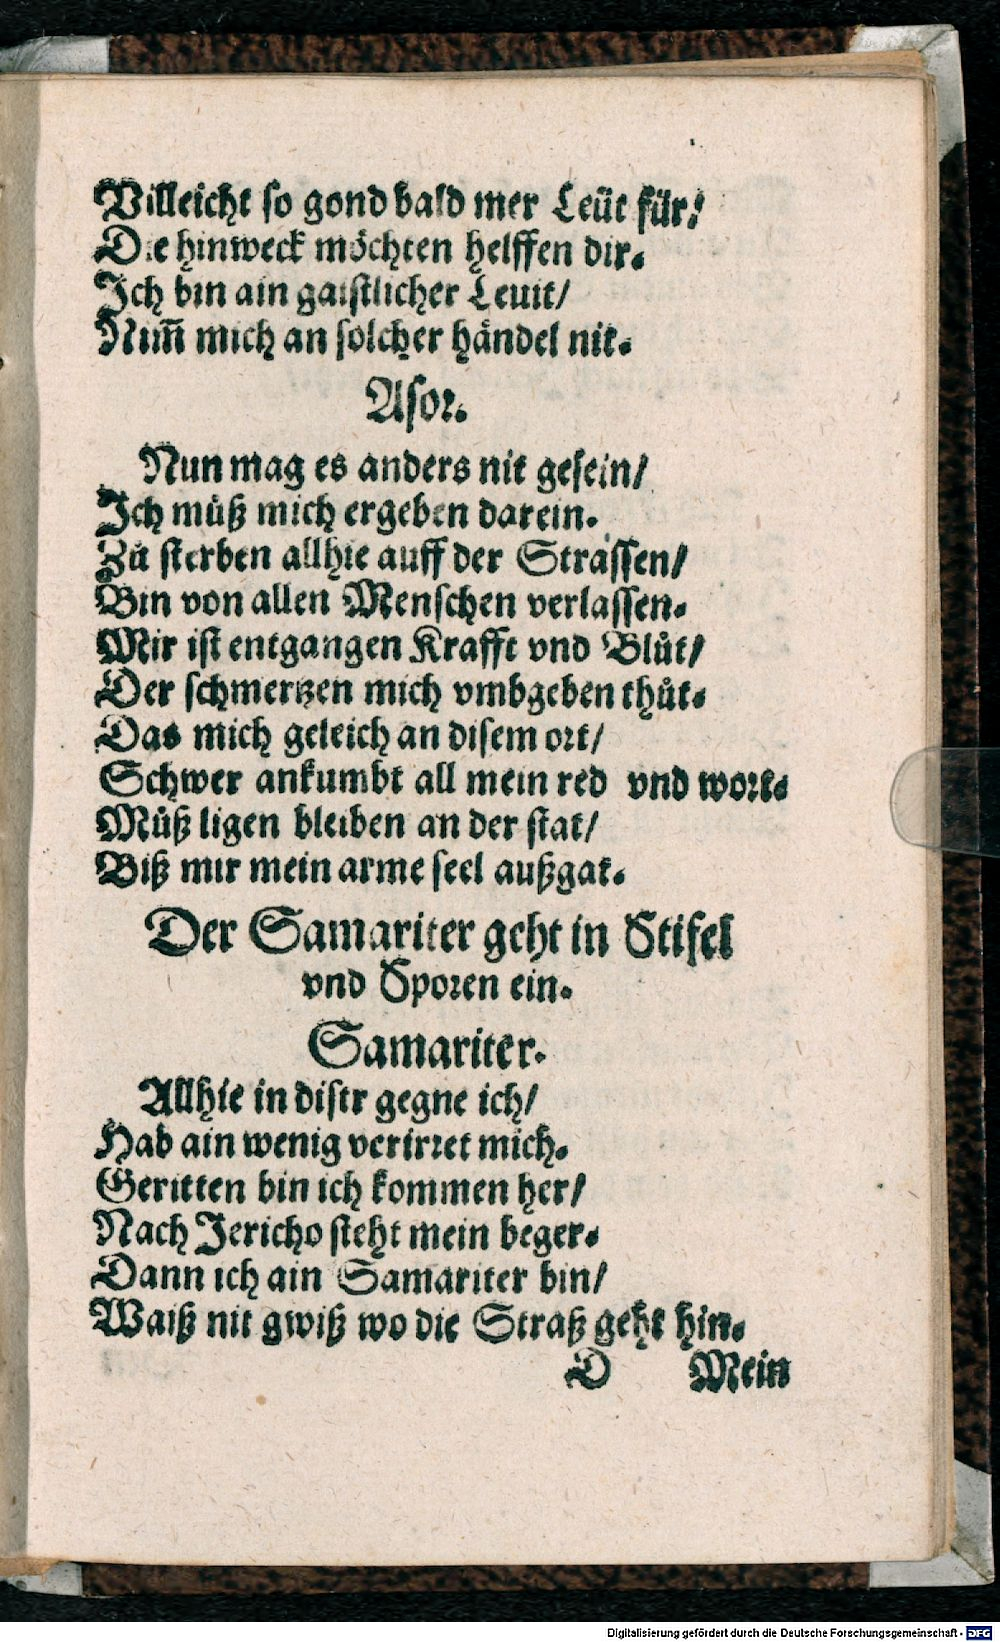 Villeicht so gond bald mer Leüt für/
Die hinweck möchten helffen dir.
Ich bin ain gaistlicher Leuit/
Nim̃ mich an solcher händel nit.
Asor.
Nun mag es anders nit gesein/
Ich müß mich ergeben darein.
Zů sterben allhie auff der Strassen/
Bin von allen Menschen verlassen.
Mir ist entgangen Krafft vnd Blůt/
Der schmertzen mich vmbgeben thůt.
Das mich geleich an disem ort/
Schwer ankumbt all mein red vnd wort.
Můß ligen bleiben an der stat/
Biß mir mein arme seel außgat.
Der Samariter geht in Stifel
vnd Sporen ein.
Samariter.
Allhie in disir gegne ich/
Hab ain wenig verirret mich.
Geritten bin ich kommen her/
Nach Jericho steht mein beger.
Dann ich ain Samariter bin/
Waiß nit gwiß wo die Straß geht hin.
D Mein
Digitalisierung gefördert durch die Deutsche Forschungsgemeinschaft - DFG